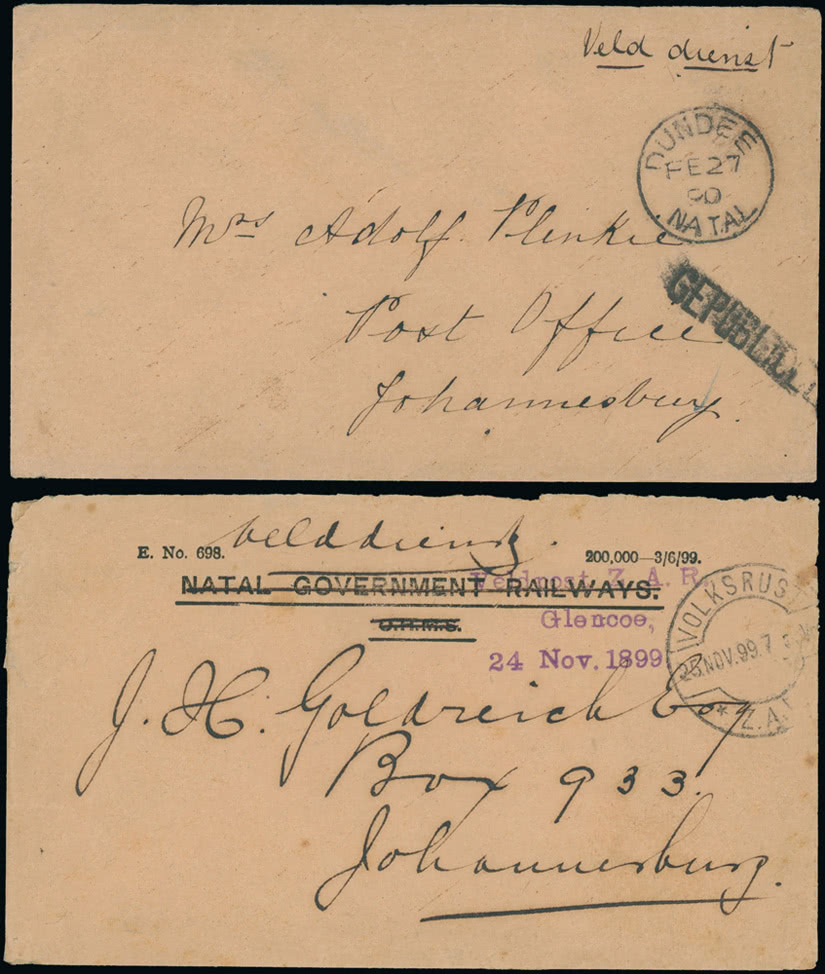 Veld dienst
DUNDEE
FE 27
90
NATAL
Mrs Adolf Plinkie
Post Office
Johannesburg.
E. No. 698.
velddienst.
200,000—3/6/99.
NATAL GOVERNMENT RAILWAYS.
O.H.M.S.
Veldpost Z. A. R.
Glencoe,
24 Nov. 1899
VOLKSRUST
25 NOV. 99. 7
Z.A.
J. H. Goldreich Esq
Box 933.
Johannesburg.